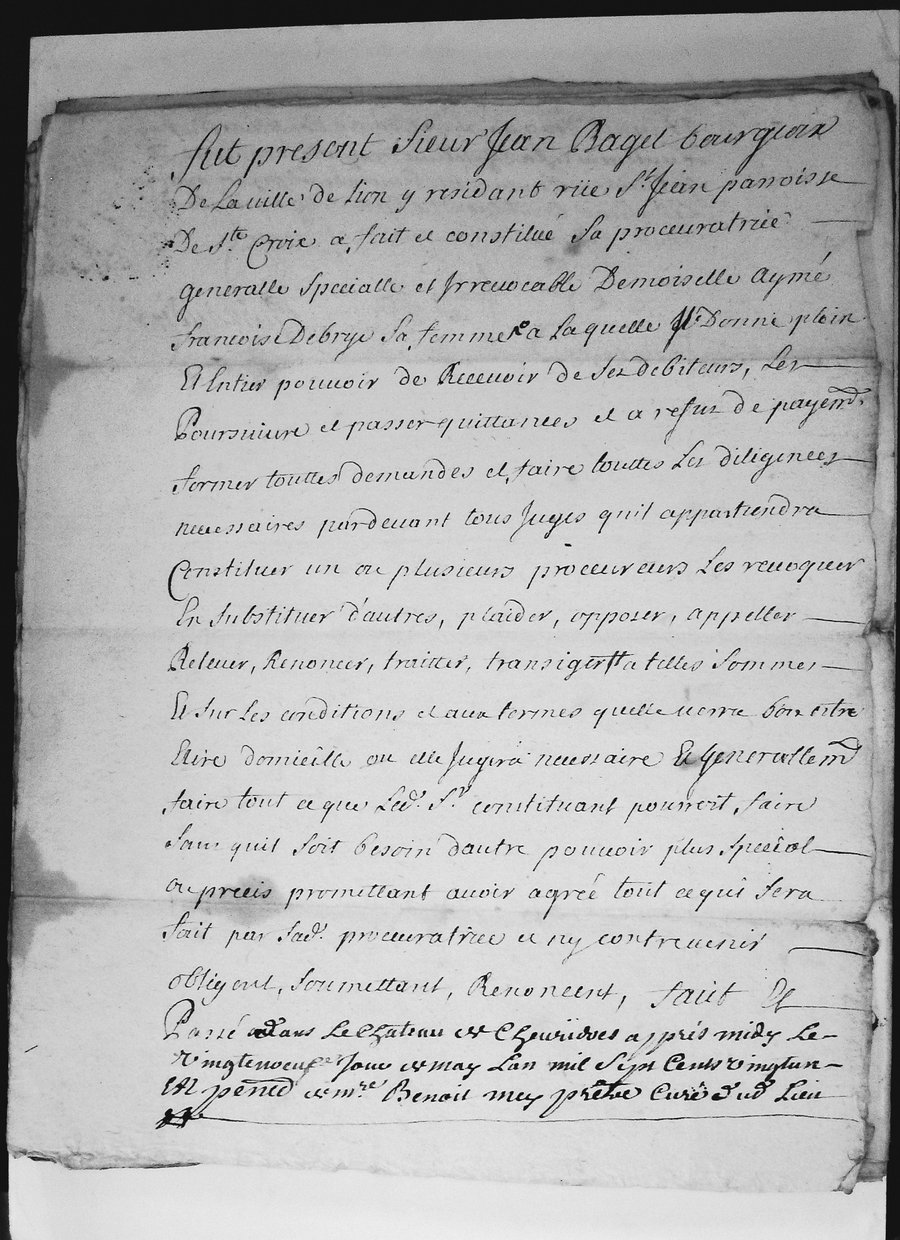 fut present Sieur Jean Bagel bourgeoix
De La ville de Lion y residant rüe St. Jean parroisse
De Ste. Croix a fait et constitué Sa procuratrice
generalle Specialle et Irrevocable Demoiselle Aymé
francoise Debrye Sa femme a Laquelle Il Donne plein
Et Entier pouvoir de Recevoir de Ses debiteurs, Les
Poursuivre et passer quittances et a refus de payemt.
former touttes demandes et faire touttes Les diligences
necessaires pardevant tous Juges quil appartiendra
Constituer un ou plusieurs procureurs Les revoquer
En Substituer d'autres, plaider, opposer, appeller
Relever, Renoncer, traitter, transiger a telles Sommes
Et Sur Les conditions et aux termes quelle verra bon estre
Elire domicille ou elle Jugera necessaire Et generallemt
faire tout ce que Led. Sr. constituant pourroit faire
Sans quil Soit besoin dautre pouvoir plus Special
ou precis promettant avoir agreé tout ce qui Sera
fait par Sad. procuratrice et ny contrevenir
obligent, Soumettant, Renoncent, fait et
Passé dans Le Chateau de apprés midy Le
vingtneuf Jour de may Lan mil Sept Cents vingt un
En de mre Benoit mey prêtre Curé dud Lieu